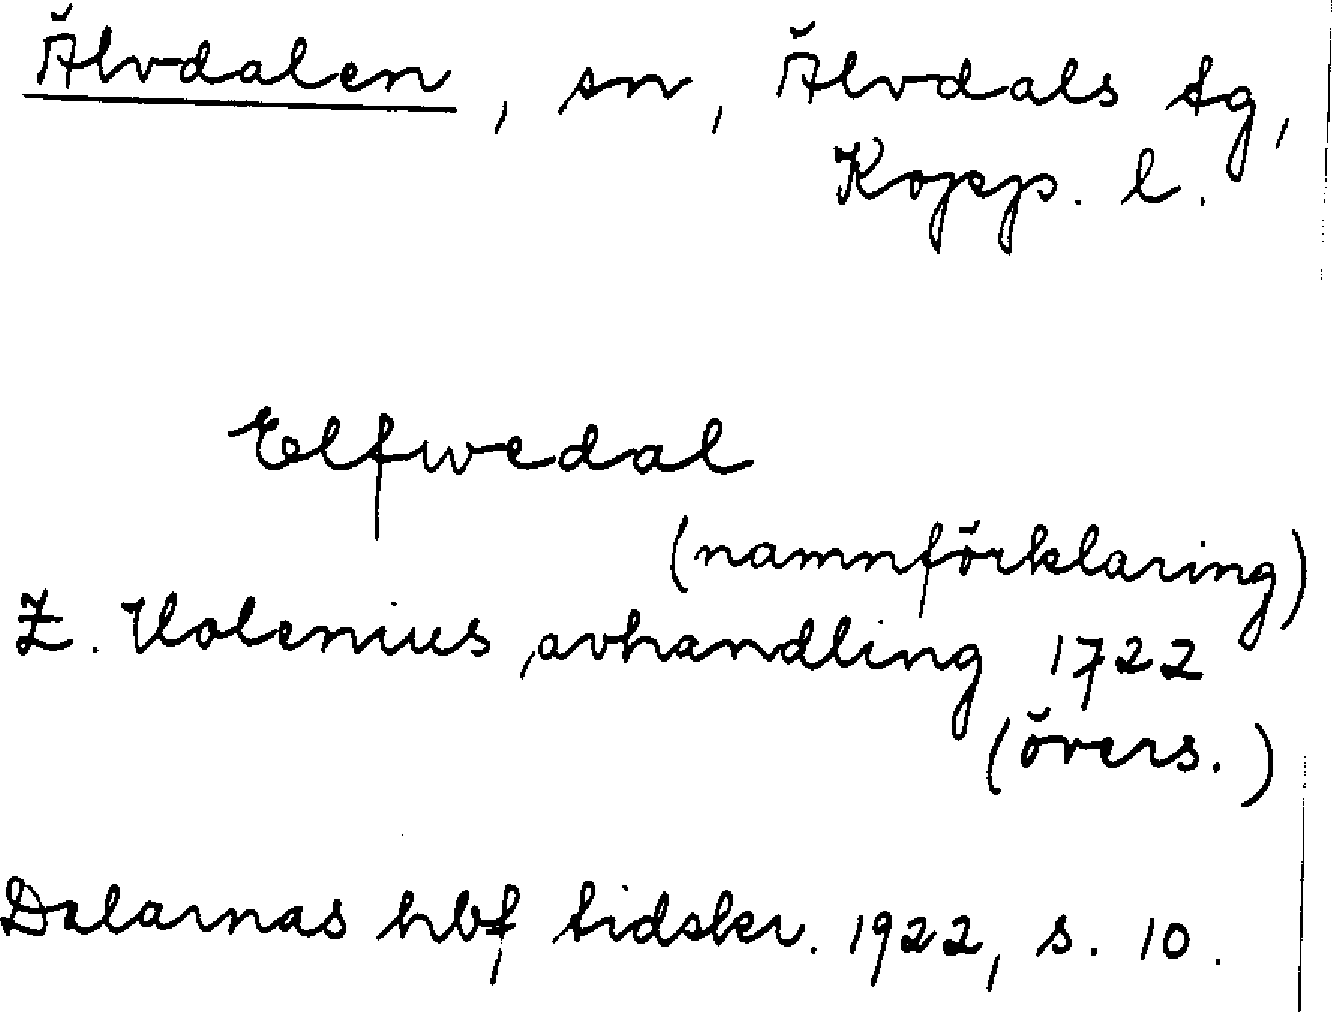 Älvdalen, sn, Älvdals tg,
Kopp. l.
Elfwedal
(namnförklaring)
Z. Holenius, avhandling 1722
(övers.)
Dalarnas hbf tidskr. 1922, s. 10.